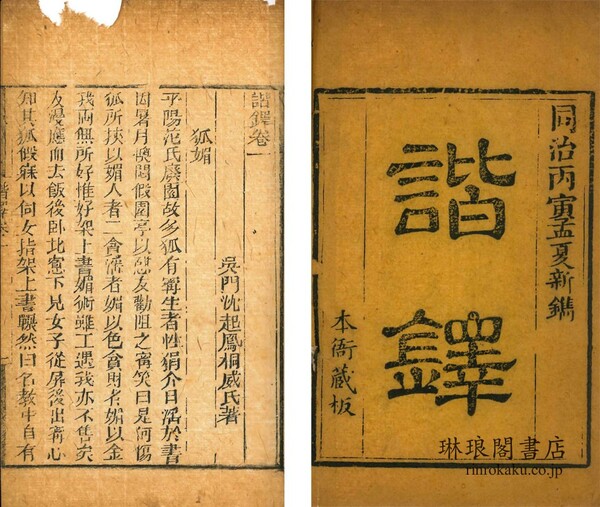 同治丙寅孟夏新鐫
諧鐸
本衙藏板
琳琅閣書店
rinrokaku.co.jp
諧鐸卷一
吳門沈起鳳桐威氏著
狐媚
平陽范氏廢園故多狐有甯生者性狷介日淫於書
因暑月閙假園亭以憩友勸阻之甯笑曰是何傷
狐所挾以媚人者二貪淫者媚以色貪財者媚以金
我兩無所好惟好架上書媚術雖工遇我亦不售矣
友漫應而去飯後臥北窻下見女子從屏後出甯心
知其狐假寐以伺女指架上書囅然曰名教中自有